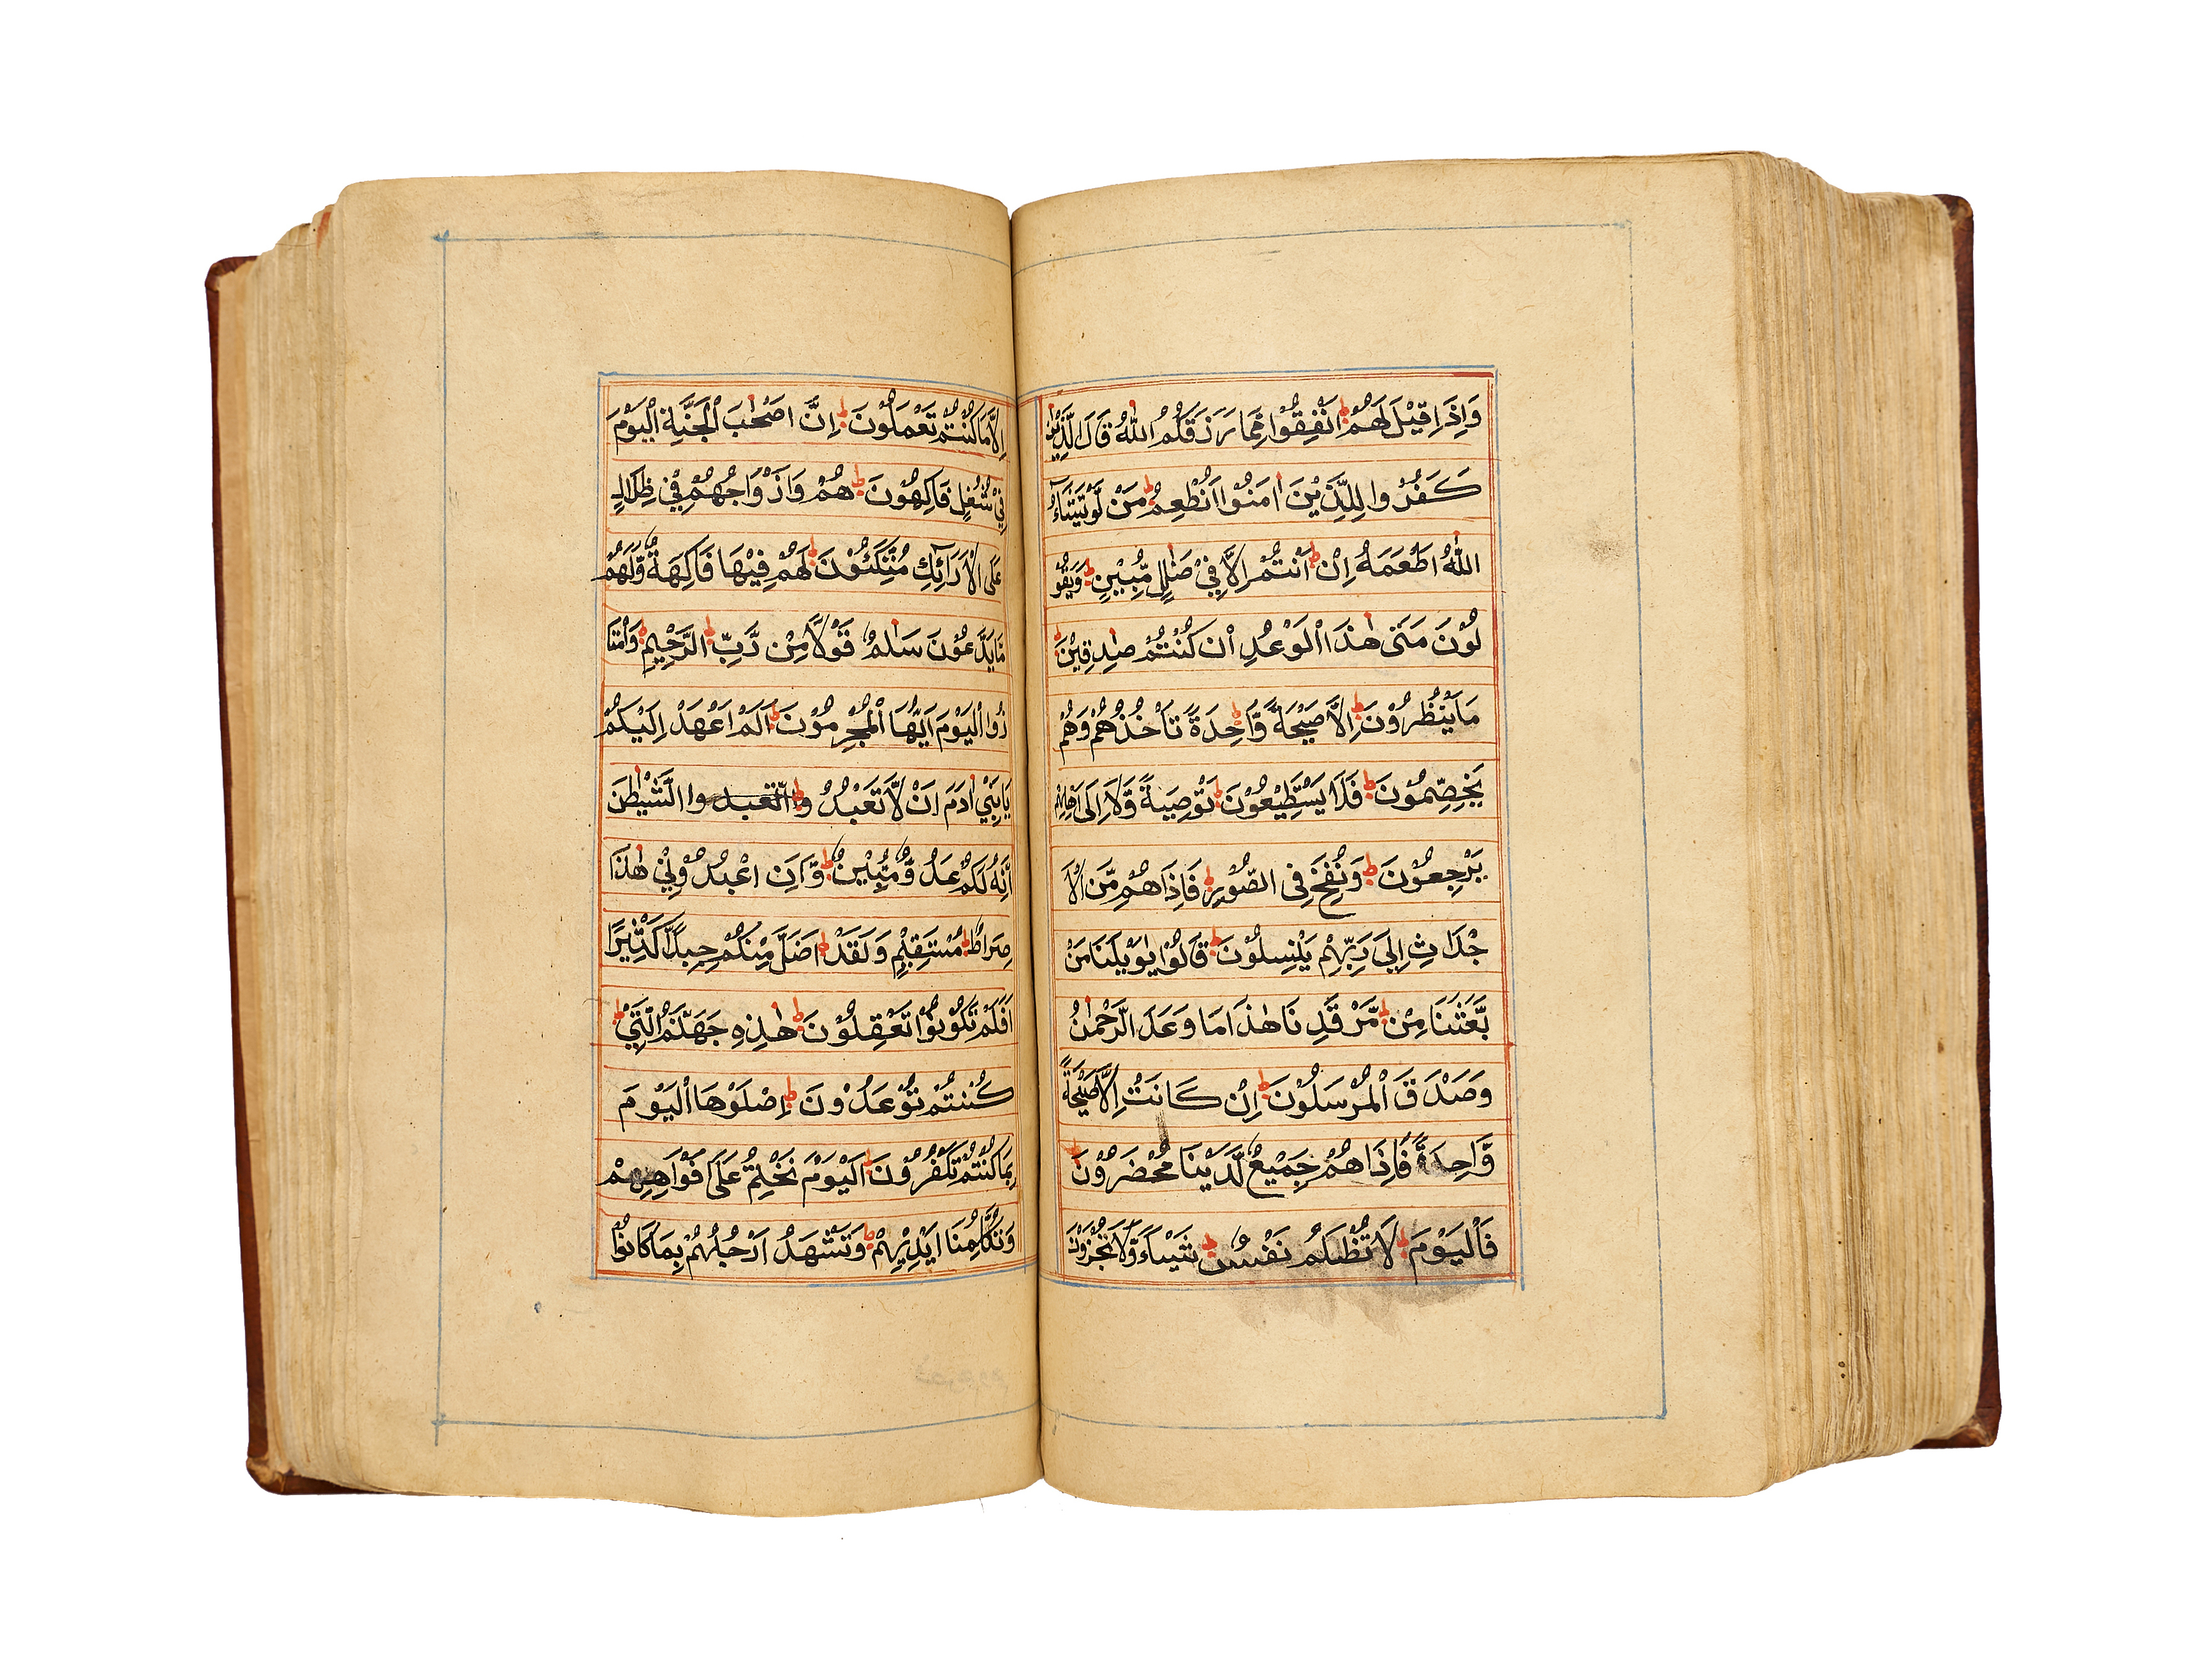 وَاِذَا قِيْلَ لَهُمْ اَنْفِقُوْا مِمَّا رَزَقَكُمُ اللّٰهُ قَالَ الَّذِيْنَ
كَفَرُوا لِلَّذِيْنَ اٰمَنُوْا اَنُطْعِمُ مَنْ لَّوْ يَشَآءُ
اللّٰهُ اَطْعَمَهُ اِنْ اَنْتُمْ اِلَّا فِيْ ضَلٰلٍ مُّبِيْنٍ وَيَقُوْ
لُوْنَ مَتٰى هٰذَا الْوَعْدِ اِنْ كُنْتُمْ صٰدِقِيْنَ
مَا يَنْظُرُوْنَ اِلَّا صَيْحَةً وَّاحِدَةً تَاْخُذُهُمْ وَهُمْ
يَخِصِّمُوْنَ فَلَا يَسْتَطِيْعُوْنَ تَوْصِيَةً وَّلَا اِلٰى اَهْلِهِمْ
يَرْجِعُوْنَ وَنُفِخَ فِى الصُّوْرِ فَاِذَا هُمْ مِّنَ الْاَ
جْدَاثِ اِلٰى رَبِّهِمْ يَنْسِلُوْنَ قَالُوْا يٰوَيْلَنَا مَنْ
بَّعَثَنَا مِنْ مَّرْقَدِنَا هٰذَا مَا وَعَدَ الرَّحْمٰنُ
وَصَدَقَ الْمُرْسَلُوْنَ اِنْ كَانَتْ اِلَّا صَيْحَةً
وَّاحِدَةً فَاِذَا هُمْ جَمِيْعٌ لَّدَيْنَا مُحْضَرُوْنَ
فَالْيَوْمَ لَا تُظْلَمُ نَفْسٌ شَيْـًٔا وَّلَا تُجْزَوْنَ
اِلَّا مَا كُنْتُمْ تَعْمَلُوْنَ اِنَّ اَصْحٰبَ الْجَنَّةِ الْيَوْمَ
فِيْ شُغُلٍ فَاكِهُوْنَ هُمْ وَاَزْوَاجُهُمْ فِيْ ظِلَالٍ
عَلَى الْاَرَآئِكِ مُتَّكِئُوْنَ لَهُمْ فِيْهَا فَاكِهَةٌ وَّلَهُمْ
مَّا يَدَّعُوْنَ سَلٰمٌ قَوْلًا مِّنْ رَّبِّ الرَّحِيْمِ وَامْتَا
زُوا الْيَوْمَ اَيُّهَا الْمُجْرِمُوْنَ اَلَمْ اَعْهَدْ اِلَيْكُمْ
يَابَنِيْ اٰدَمَ اَنْ لَّا تَعْبُدُوا الشَّيْطٰنَ
اِنَّهُ لَكُمْ عَدُوٌّ مُّبِيْنٌ وَّاَنِ اعْبُدُوْنِيْ هٰذَا
صِرَاطٌ مُسْتَقِيْمٌ وَلَقَدْ اَضَلَّ مِنْكُمْ جِبِلًّا كَثِيْرًا
اَفَلَمْ تَكُوْنُوْا تَعْقِلُوْنَ هٰذِهِ جَهَنَّمُ الَّتِيْ
كُنْتُمْ تُوْعَدُوْنَ اِصْلَوْهَا الْيَوْمَ
بِمَا كُنْتُمْ تَكْفُرُوْنَ اَلْيَوْمَ نَخْتِمُ عَلٰى اَفْوَاهِهِمْ
وَتُكَلِّمُنَا اَيْدِيْهِمْ وَتَشْهَدُ اَرْجُلُهُمْ بِمَا كَانُوْا